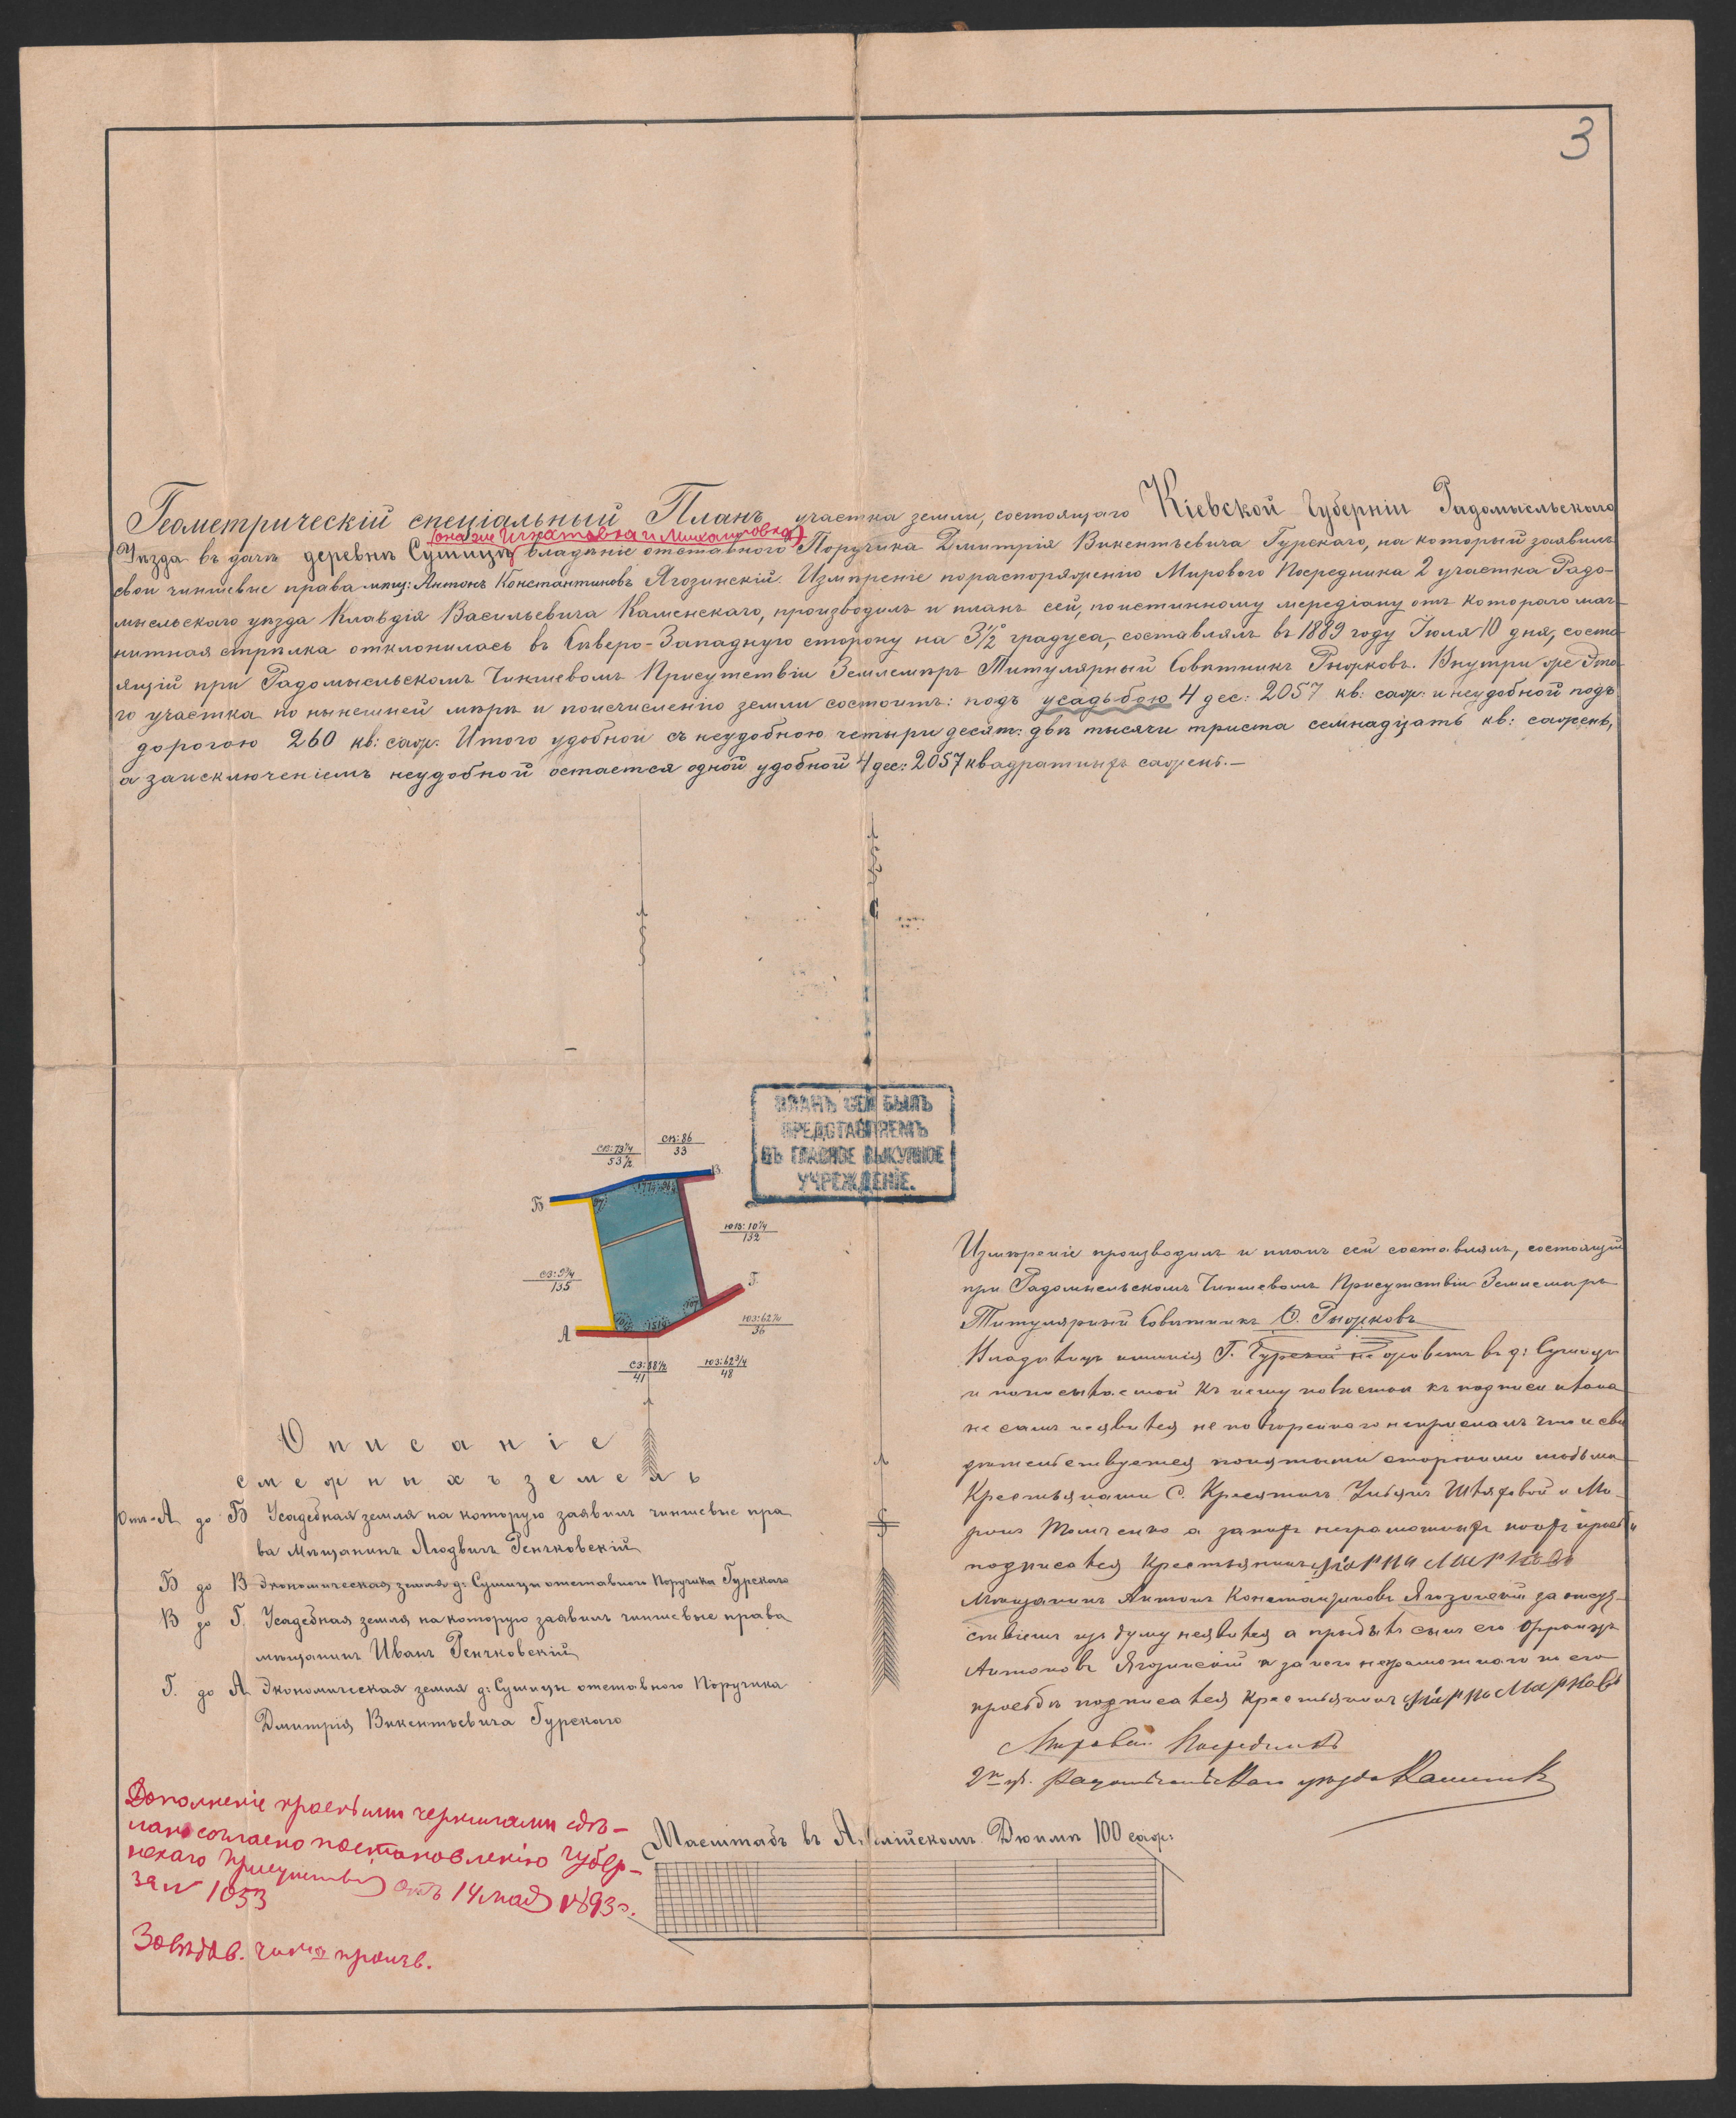 3
Геометрическій спеціальный Планъ участка земли, состоящаго Кіевской Губерніи Радомысльскаго
(она же Игнатовка и Михайловка)
Уѣзда въ дачѣ деревнѣ Сушицѣ владѣніе отставного Поручика Дмитрія Викентьевича Гурскаго, на который заявилъ
свои чиншевые права мѣщ: Антонъ Константиновъ Ягозинскій. Измѣреніе пораспоряженію Мирового Посредника 2 участка Радо-
мысльскаго уѣзда Клавдія Васильевича Каменскаго, производилъ и планъ сей, поистинному меридіану отъ котораго маг-
нитная стрѣлка отклонилась въ Сѣверо-Западную сторону на 3½° градуса, составлялъ въ 1889 году Іюля 10 дня, состо-
ящій при Радомысльскомъ Чиншевомъ Присутствіи Землемѣръ Титулярный Совѣтникъ Рыжковъ. Внутри же Это-
го участка по нынешней мѣрѣ и поисчисленію земли состоитъ: подъ усадьбою 4 дес: 2057 кв: саж: и неудобной подъ
дорогою 260 кв: саж: Итого удобной съ неудобною четыри десят: двѣ тысячи триста семнадцать кв: сажень,
а заисключеніемъ неудобной остается одной удобной 4 дес: 2057 квадратныхъ сажень.—
С
ПЛАНЪ СЕЙ БЫЛЪ
ПРЕДСТАВЛЯЕМЪ
ВЪ ГЛАВНОЕ ВЫКУПНОЕ
УЧРЕЖДЕНІЕ.
СВ: 73¼
53½
СВ: 86
33
Б
В.
ЮВ: 10¼
132
СЗ: 9¾
135
Г.
ЮЗ: 62¼
36
А
СЗ: 88½
41
ЮЗ: 62¾
48
Описаніе
смежныхъ земель
Отъ А до Б Усадебная земля на которую заявилъ чиншевые пра
ва Мѣщанинъ Людвигъ Генчковскій
Б до В Экономическая земля д: Сушицы отставного Поручика Гурскаго
В до Г. Усадебная земля на которую заявилъ чиншевые права
мѣщанинъ Иванъ Генчковскій
Г. до А Экономическая земля д: Сушицы отставного Поручика
Дмитрія Викентьевича Гурскаго
Измѣреніе производилъ и планъ сей составлялъ, состоящій
при Радомысльскомъ Чиншевомъ Присутствіи Землемѣръ
Титулярный Совѣтникъ Рыжковъ
Владѣлецъ имѣнія Г. Гурскій не живетъ въ д: Сушицѣ
и къ нему повѣстки къ подписи плана
не самъ не явился не повѣреннаго не прислалъ что и сви
дѣтельствуется понятыми сторонними людьми
Крестьянами С.
а за ихъ неграмотныхъ поихъ прозьбѣ
подписался Крестьянинъ
Мѣщанинъ Антонъ Константиновъ Ягозинскій за отсут-
ствіемъ не явился а прибылъ сынъ его Францъ
Антоновъ Ягозинскій и за него неграмотнаго по его
прозьбѣ подписался Крестьянинъ
Мировой Посредникъ
2го уч. Радомысльскаго уѣзда Каменскій
Дополненіе красными чернилами сдѣ-
лано согласно постановленію Губер-
нскаго присутствія отъ 14 мая 1893 г.
за № 1053
Завѣдов. чинш произв.
Масштабъ въ Англійскомъ Дюймѣ 100 саж: